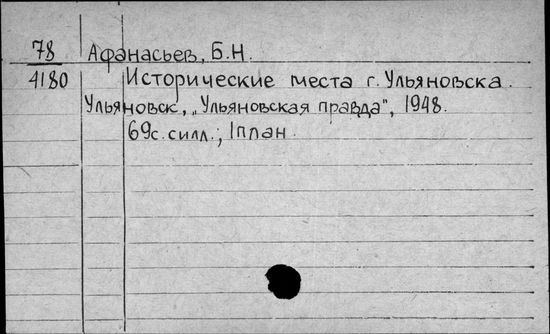 78 Афанасьев, Б.Н.
4180 Исторические места г. Ульяновска.
Ульяновск, „Ульяновская правда", 1948.
69с. с илл.; 1 план.